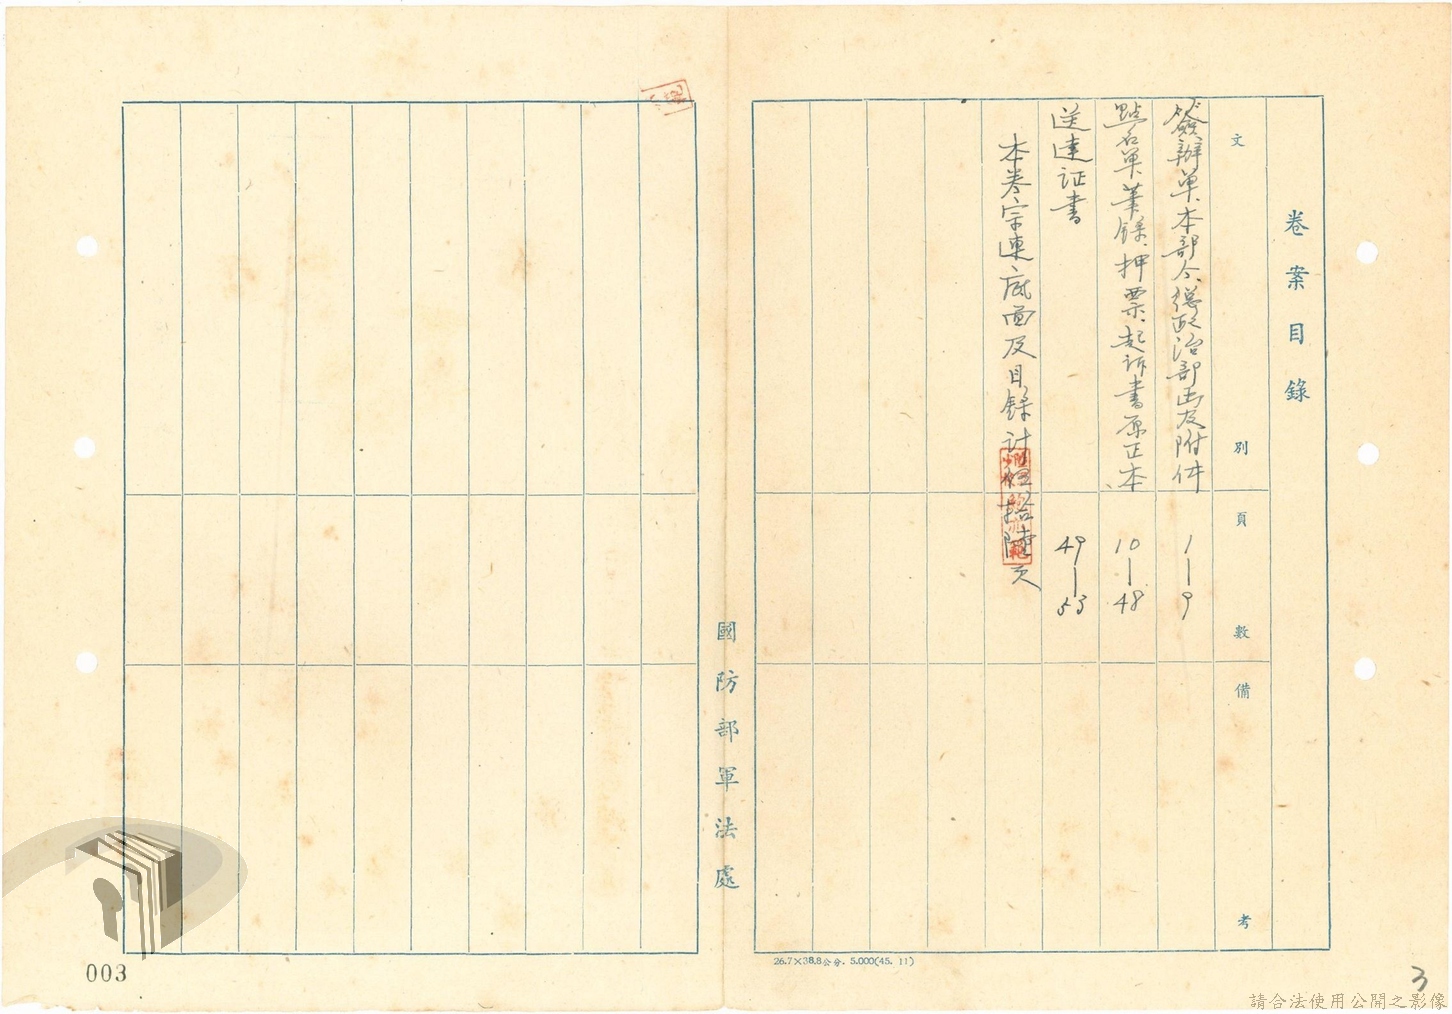 卷案目錄
文別
頁數
備考
簽辦單、本部令、總政治部函及附件
1—9
點名單、筆錄、押票、起訴書原正本
10—48
送達証書
49—53
本卷宗連底面及目錄計伍拾陸頁
國防部軍法處
26.7×38.8公分. 5.000(45. 11)
003
3
請合法使用公開之影像